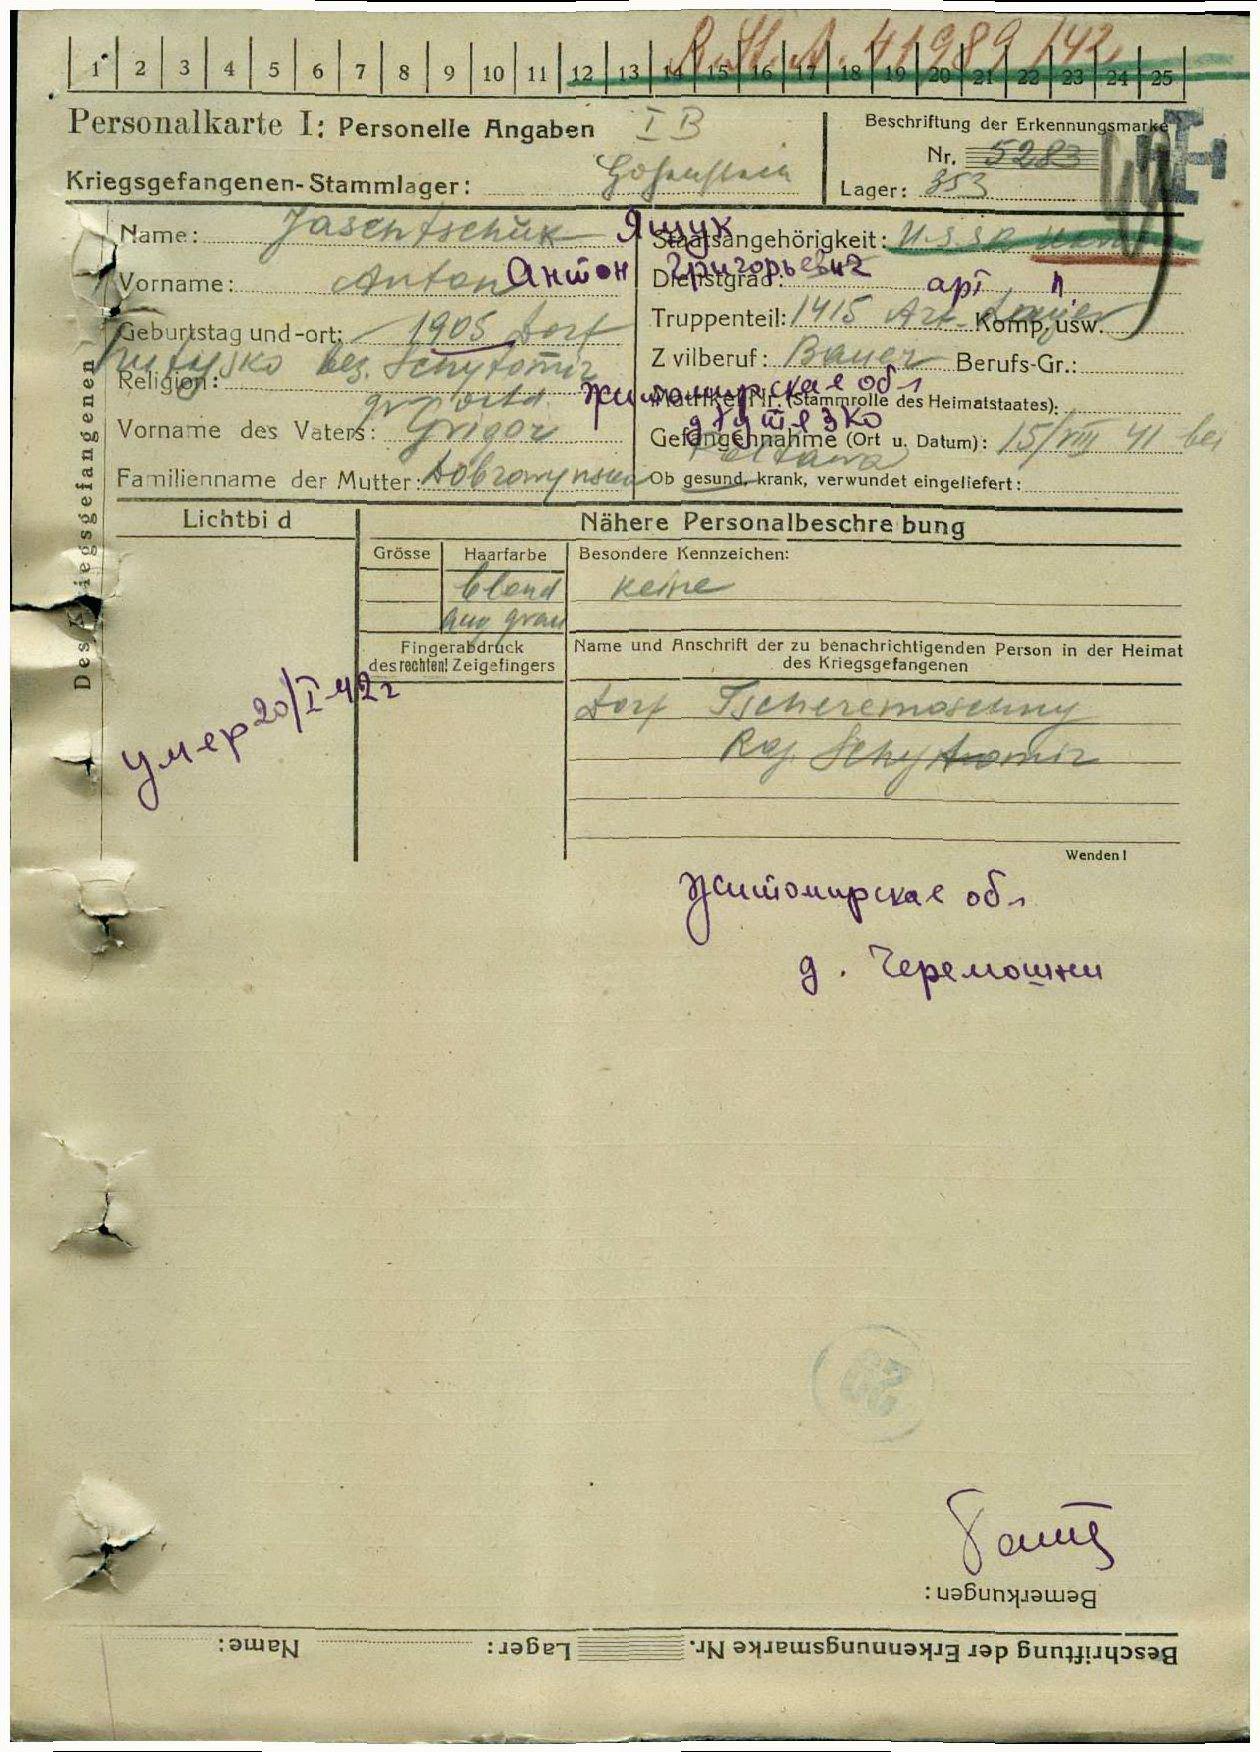 R.St.A. 41989/42
1 2 3 4 5 6 7 8 9 10 11 12 13 14 15 16 17 18 19 20 21 22 23 24 25
Personalkarte I: Personelle Angaben I B
Beschriftung der Erkennungsmarke
Nr. 5283
Kriegsgefangenen-Stammlager: Hohenstein
Lager: 353
Des Kriegsgefangenen
Name: Jaschtschuk Ящук
Staatsangehörigkeit: U.S.S.R.
Vorname: Anton Антон Григорьевич
Dienstgrad: арт п.
Geburtstag und -ort: 1905 Dorf
Truppenteil: 1415 Art. Komp. usw.
bez. Schytomir
Zivilberuf: Bauer Berufs-Gr.:
Religion:
Житомирская обл
Matrikel Nr. (Stammrolle des Heimatstaates):
Vorname des Vaters: Grigor
Gefangennahme (Ort u. Datum): 15/VIII 41 bei
Poltawa
Familienname der Mutter:
Ob gesund, krank, verwundet eingeliefert:
Lichtbi d
Nähere Personalbeschre bung
Grösse Haarfarbe Besondere Kennzeichen:
blond keine
Aug grau
Fingerabdruck
des rechten! Zeigefingers
Name und Anschrift der zu benachrichtigenden Person in der Heimat
des Kriegsgefangenen
умер 20/I-42г
Dorf Tscheremoschny
Raj. Schytomir
Wenden!
Житомирская обл
д. Черемошни
Bemerkungen:
Beschriftung der Erkennungsmarke Nr. Lager: Name: